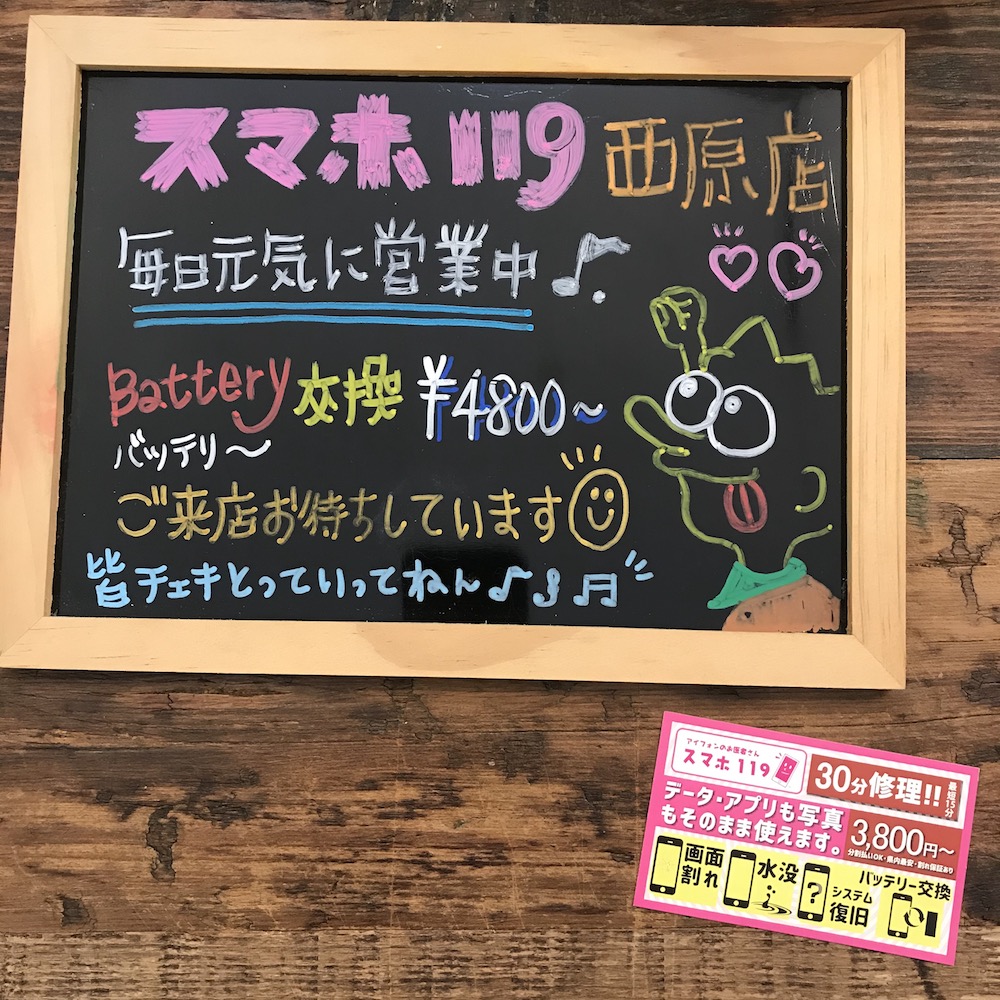 スマホ119 西原店
毎日元気に営業中♪
Battery交換 ¥4800〜
バッテリ〜
ご来店お待ちしています
皆チェキとっていってねん♪
アイフォンのお医者さん
スマホ119
30分修理!!
最短15分
データ・アプリも写真
もそのまま使えます。
3,800円〜
分割払いOK・県内最安・割れ保証あり
画面
割れ
水没
?
システム
復旧
バッテリー交換